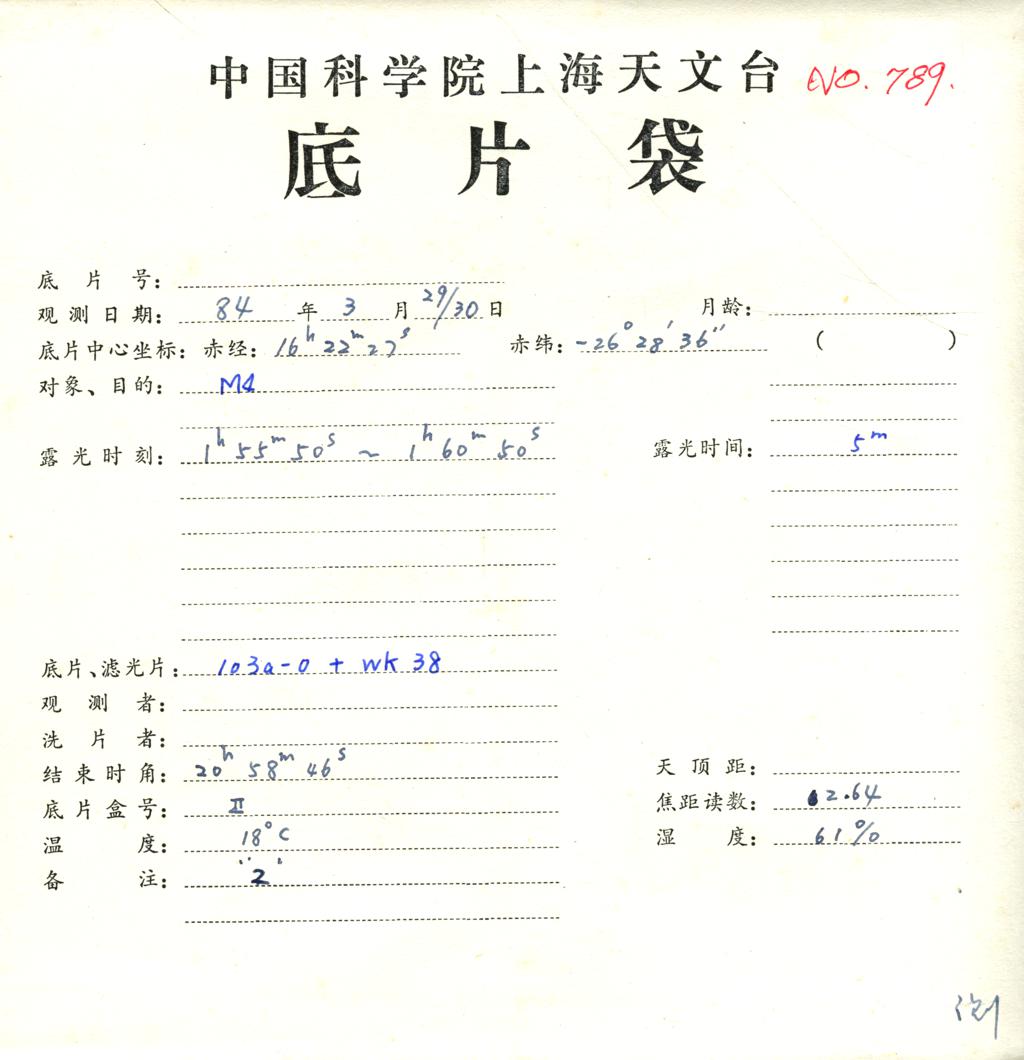 中国科学院上海天文台 NO. 789.
底片袋
底片号：
观测日期： 84 年 3 月 29/30 日 月龄：
底片中心坐标：赤经： 16h 22m 27s 赤纬： -26° 28′ 36″ ( )
对象、目的： M4
露光时刻： 1h 55m 50s ~ 1h 60m 50s 露光时间： 5m
底片、滤光片： 103a-0 + WK 38
观测者：
洗片者：
结束时角： 20h 58m 46s 天顶距：
底片盒号： II 焦距读数： 2.64
温度： 18°C 湿度： 61%
备注： "2"